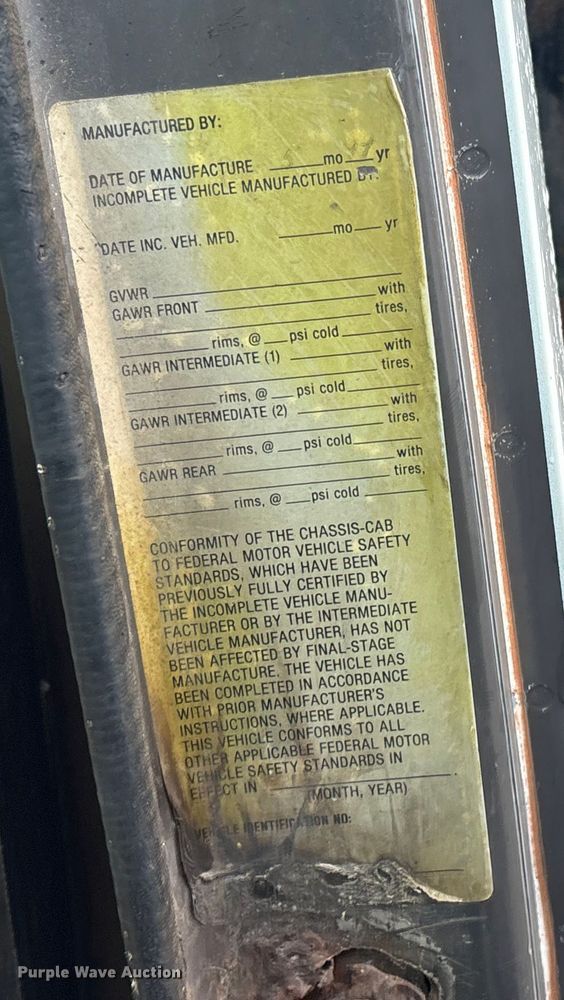 MANUFACTURED BY:
DATE OF MANUFACTURE ____mo____yr
INCOMPLETE VEHICLE MANUFACTURED BY:
DATE INC. VEH. MFD. ____mo____yr
GVWR ____
GAWR FRONT ____with
____tires,
____rims, @ ____psi cold____
GAWR INTERMEDIATE (1) ____with
____tires,
____rims, @ ____psi cold____
GAWR INTERMEDIATE (2) ____with
____tires,
____rims, @ ____psi cold____
GAWR REAR ____with
____tires,
____rims, @ ____psi cold____
CONFORMITY OF THE CHASSIS-CAB
TO FEDERAL MOTOR VEHICLE SAFETY
STANDARDS, WHICH HAVE BEEN
PREVIOUSLY FULLY CERTIFIED BY
THE INCOMPLETE VEHICLE MANU-
FACTURER OR BY THE INTERMEDIATE
VEHICLE MANUFACTURER, HAS NOT
BEEN AFFECTED BY FINAL-STAGE
MANUFACTURE. THE VEHICLE HAS
BEEN COMPLETED IN ACCORDANCE
WITH PRIOR MANUFACTURER'S
INSTRUCTIONS, WHERE APPLICABLE.
THIS VEHICLE CONFORMS TO ALL
OTHER APPLICABLE FEDERAL MOTOR
VEHICLE SAFETY STANDARDS IN
EFFECT IN ____
(MONTH, YEAR)
VEHICLE IDENTIFICATION NO:
Purple Wave Auction